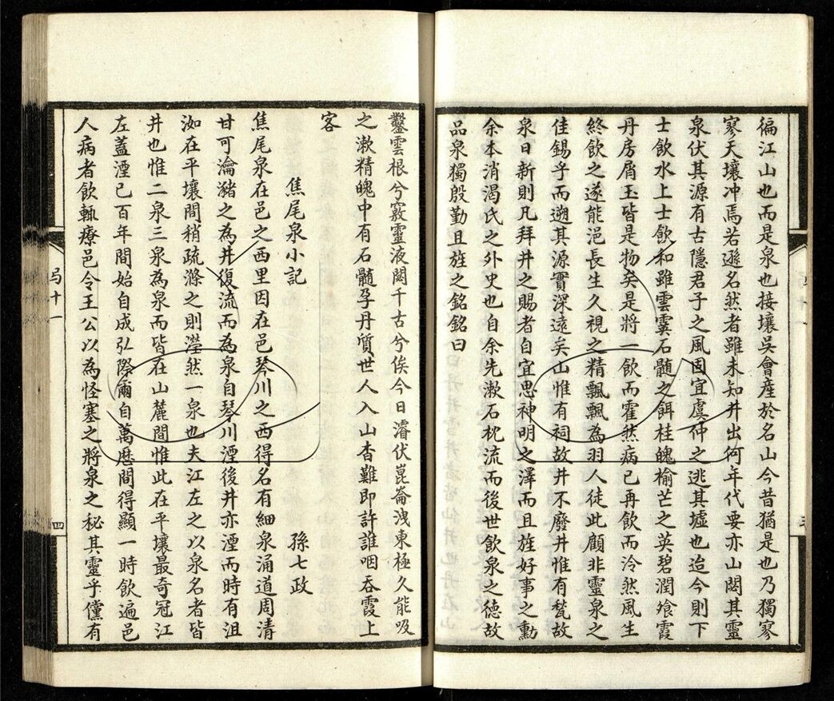 徧江山也而是泉也接壤吳會產於名山今昔猶是也乃獨寥
寥天壤冲焉若遜名然者雖未知井出何年代要亦山閟其靈
泉伏其源有古隱君子之風固宜虞仲之逃其墟也迨今則下
士飲水上士飲和雖雲霙石髓之餌桂魄榆芒之英碧澗飧霞
丹房屑玉皆是物矣是將一飲而霍然病已再飲而泠然風生
終飲之遂能浥長生久視之精飄飄為羽人徒此顧非靈泉之
佳錫乎而遡其源實深遠矣山惟有祠故井不廢井惟有甃故
泉日新則凡拜井之賜者自宜思神明之澤而且旌好事之勳
余本消渴氏之外史也自余先漱石枕流而後世飲泉之德故
品泉獨殷勤且旌之銘銘曰
鑿雲根兮竅靈液閟千古兮俟今日濬伏崑崙洩東極久能吸
之漱精魄中有石髓孕丹質世人入山杳難即許誰咽吞霞上
客
焦尾泉小記
孫七政
焦尾泉在邑之西里因在邑琴川之西得名有細泉涌道周清
甘可瀹豬之為井復流而為泉自琴川湮後井亦湮而時有沮
洳在平壤間稍疏滌之則瀅然一泉也夫江左之以泉名者皆
井也惟二泉三泉為泉而皆在山麓間惟此在平壤最奇冠江
左蓋湮已百年間始自成弘際爾自萬曆間得顯一時飲遍邑
人病者飲輒療邑令王公以為怪塞之將泉之秘其靈乎儻有
四